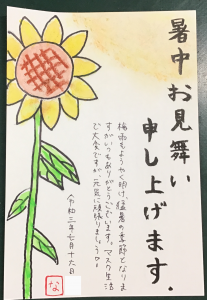 暑中お見舞い
申し上げます。
梅雨もようやく明け、猛暑の季節となりま
すがいつもありがとうございます。マスク生活
で大変ですが、元気に頑張りましょうね
令和三年七月十六日
な